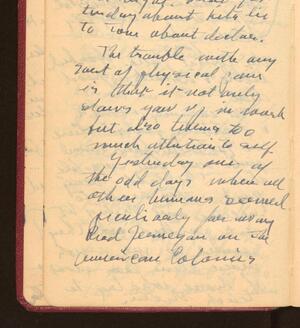 about
to Tom about
The trouble with any
sort of physical
is that it not only
slows you up in work
but also turns too
much attention to self
Yesterday one of
the odd days when all
other humans seemed
peculiarly
Read Jernegan on the
American Colonies